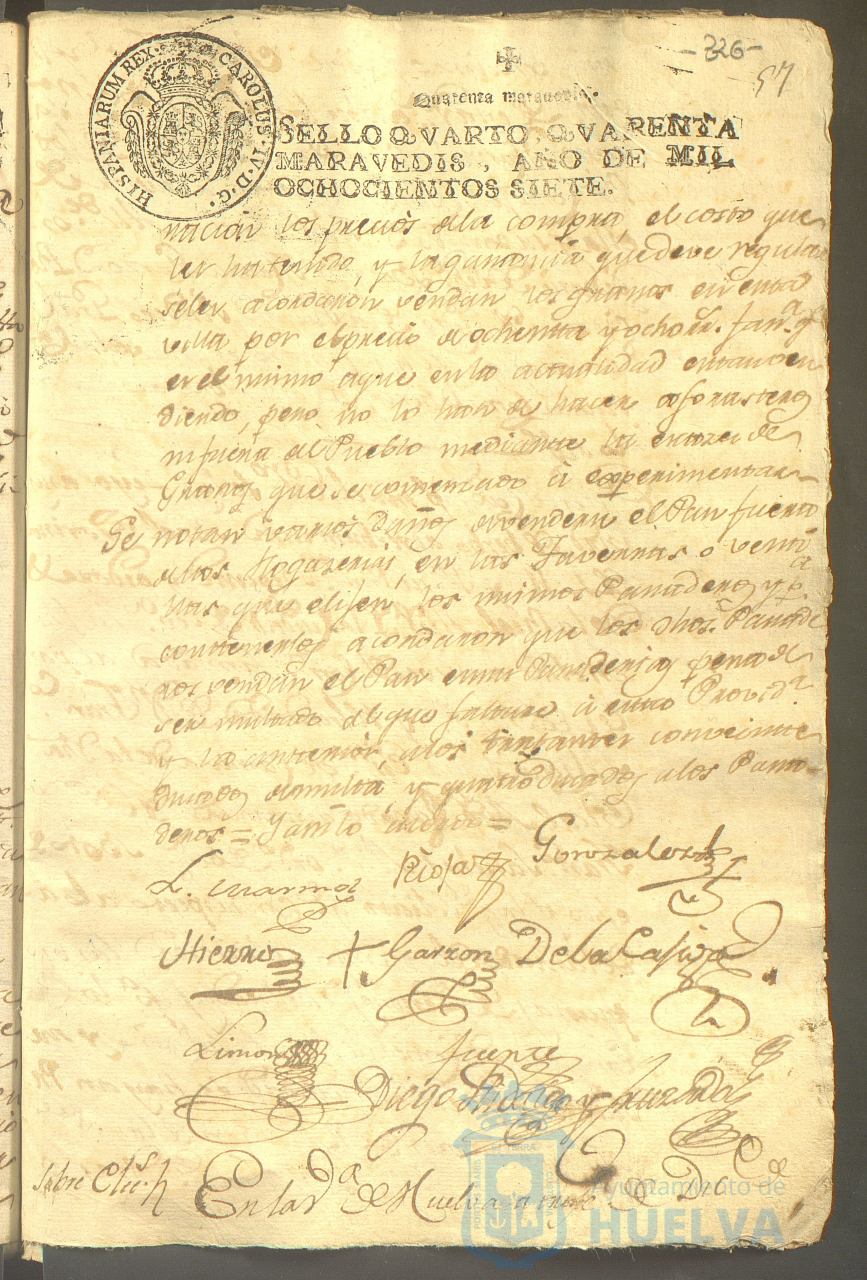 -326-
57
HISPANIARUM REX. CAROLUS. IV. D. G.
Quarenta maravedis.
SELLO QVARTO, QVARENTA
MARAVEDIS, AÑO DE MIL
OCHOCIENTOS SIETE.
nacion los precios dela compra, el costo que
les ha tenido, y la ganancia que deve regular
seles acordaron vendan los granos en esta
villa por el precio de ochenta y ocho rs. fana. q
es el mismo aque en la actualidad estan ven
diendo, pero no lo han de hacer a forasteros
ni fuera del Pueblo mediante la escasez de
Granos que se comenzado á experimentar
Se notan varios daños de venderse el Pan fuera
delas Hogazerias, en las Tavernas o venti
llas que elisen los mismos Panaderos y pa.
contenerlos acordaron que los dhos. Panade
ros vendan el Pan en sus Panaderias pena de
ser multado el que faltare á esta Provida.
y la anterior, alos tratantes con veinte
ducados de multa, y quatro ducados a los Pana
deros = Y asi lo
L. Marmol
Rioja
Gonzalez
Hierro
Garzon
De la Casi
Limon
fuente
Diego y
sobre
En la va. de Huelva a de
Ayuntamiento de
HUELVA